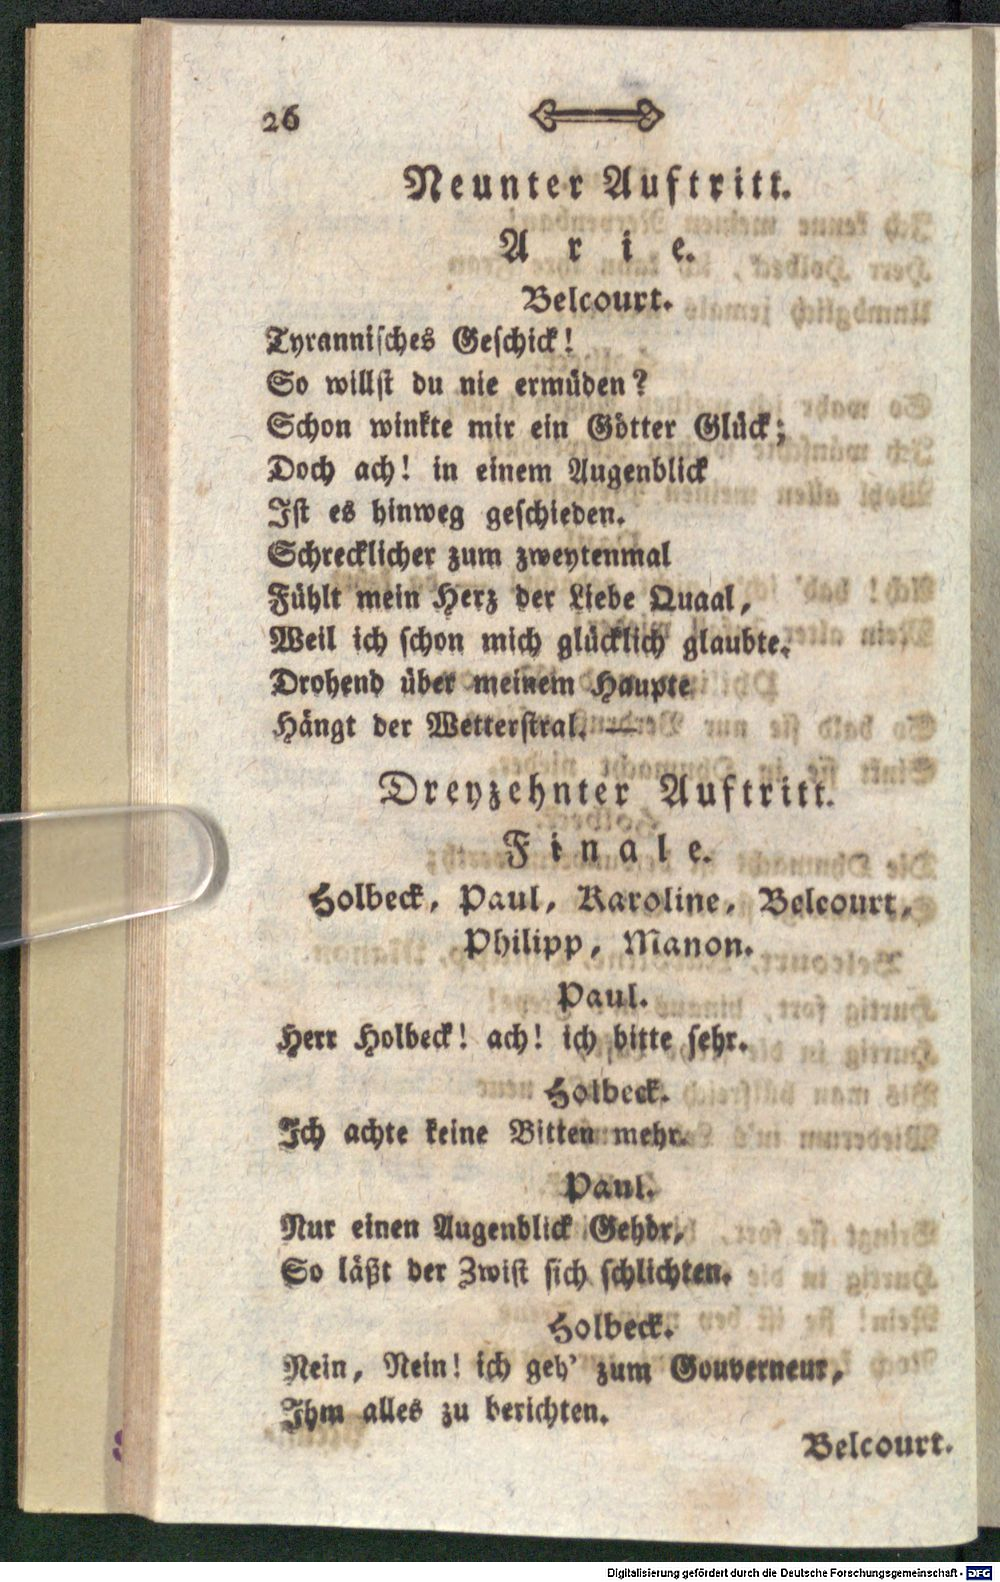 26
Neunter Auftritt.
Arie.
Belcourt.
Tyrannisches Geschick!
So willst du nie ermüden?
Schon winkte mir ein Götter Glück;
Doch ach! in einem Augenblick
Ist es hinweg geschieden.
Schrecklicher zum zweytenmal
Fühlt mein Herz der Liebe Quaal,
Weil ich schon mich glücklich glaubte.
Drohend über meinem Haupte
Hängt der Wetterstral. —
Dreyzehnter Auftritt.
Finale.
Holbeck, Paul, Karoline, Belcourt,
Philipp, Manon.
Paul.
Herr Holbeck! ach! ich bitte sehr.
Holbeck.
Ich achte keine Bitten mehr.
Paul.
Nur einen Augenblick Gehör,
So läßt der Zwist sich schlichten.
Holbeck.
Nein, Nein! ich geh' zum Gouverneur,
Ihm alles zu berichten.
Belcourt.
Digitalisierung gefördert durch die Deutsche Forschungsgemeinschaft - DFG